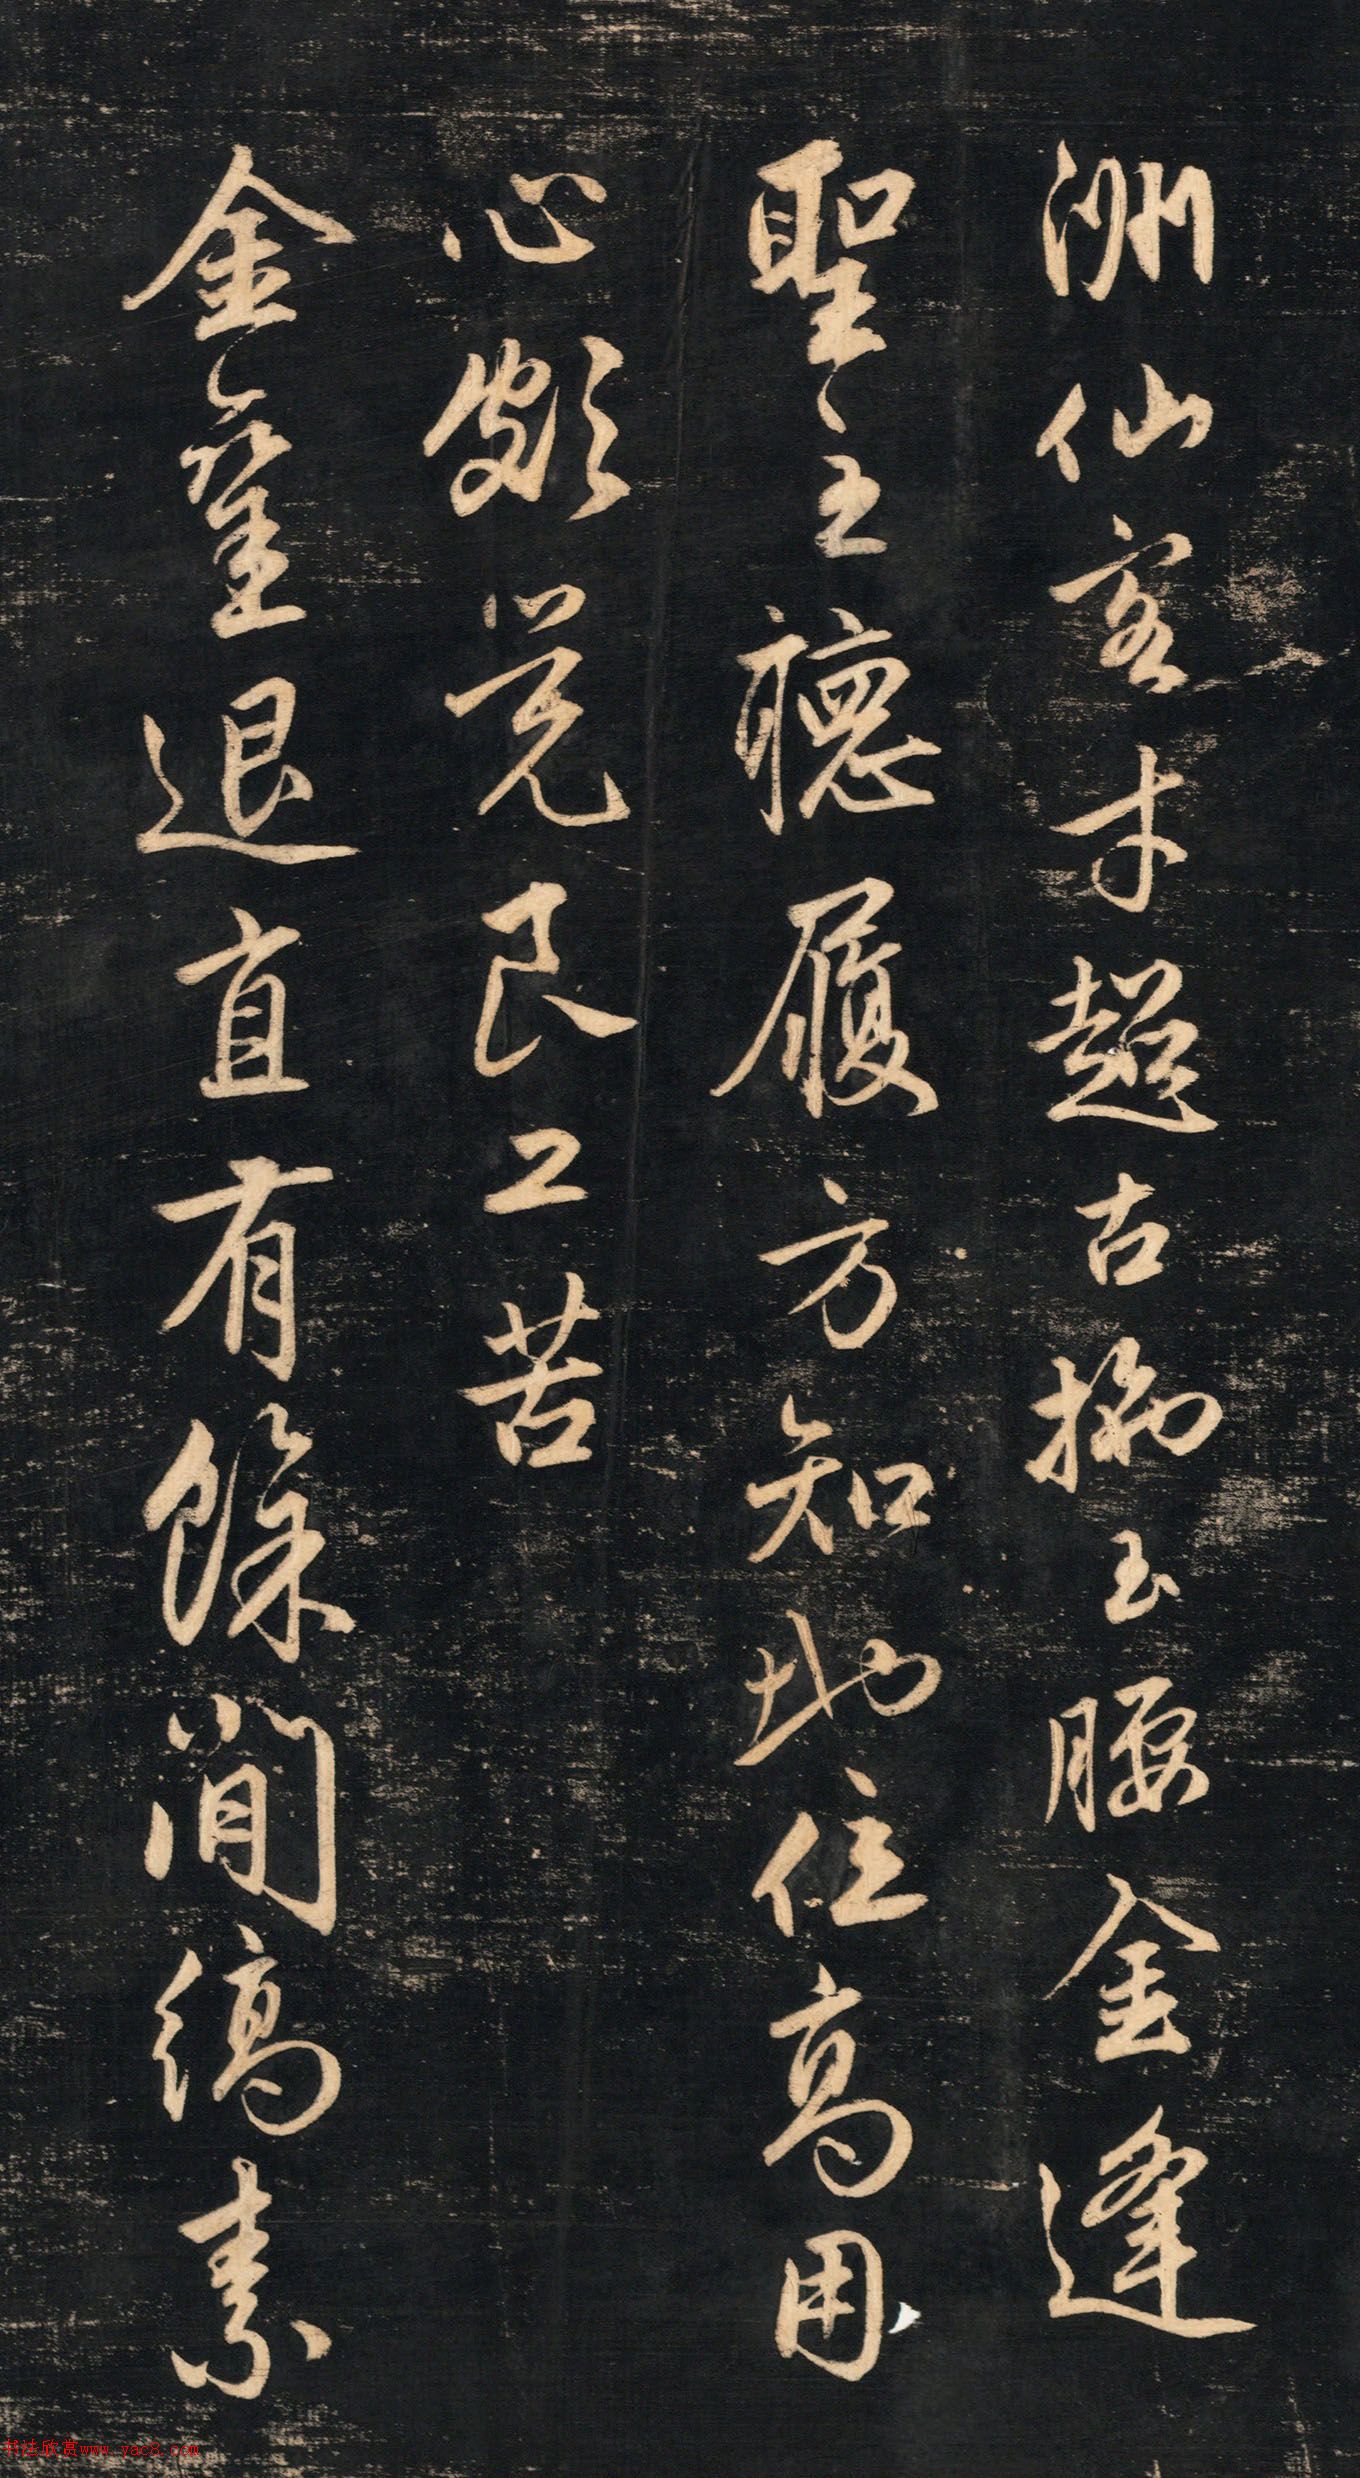 洲仙客才超古拖玉腰金逢
聖主聽履方知地位高用
心頗覺良工苦
金鑾退直有餘間縞素
书法欣赏www.yac8.com